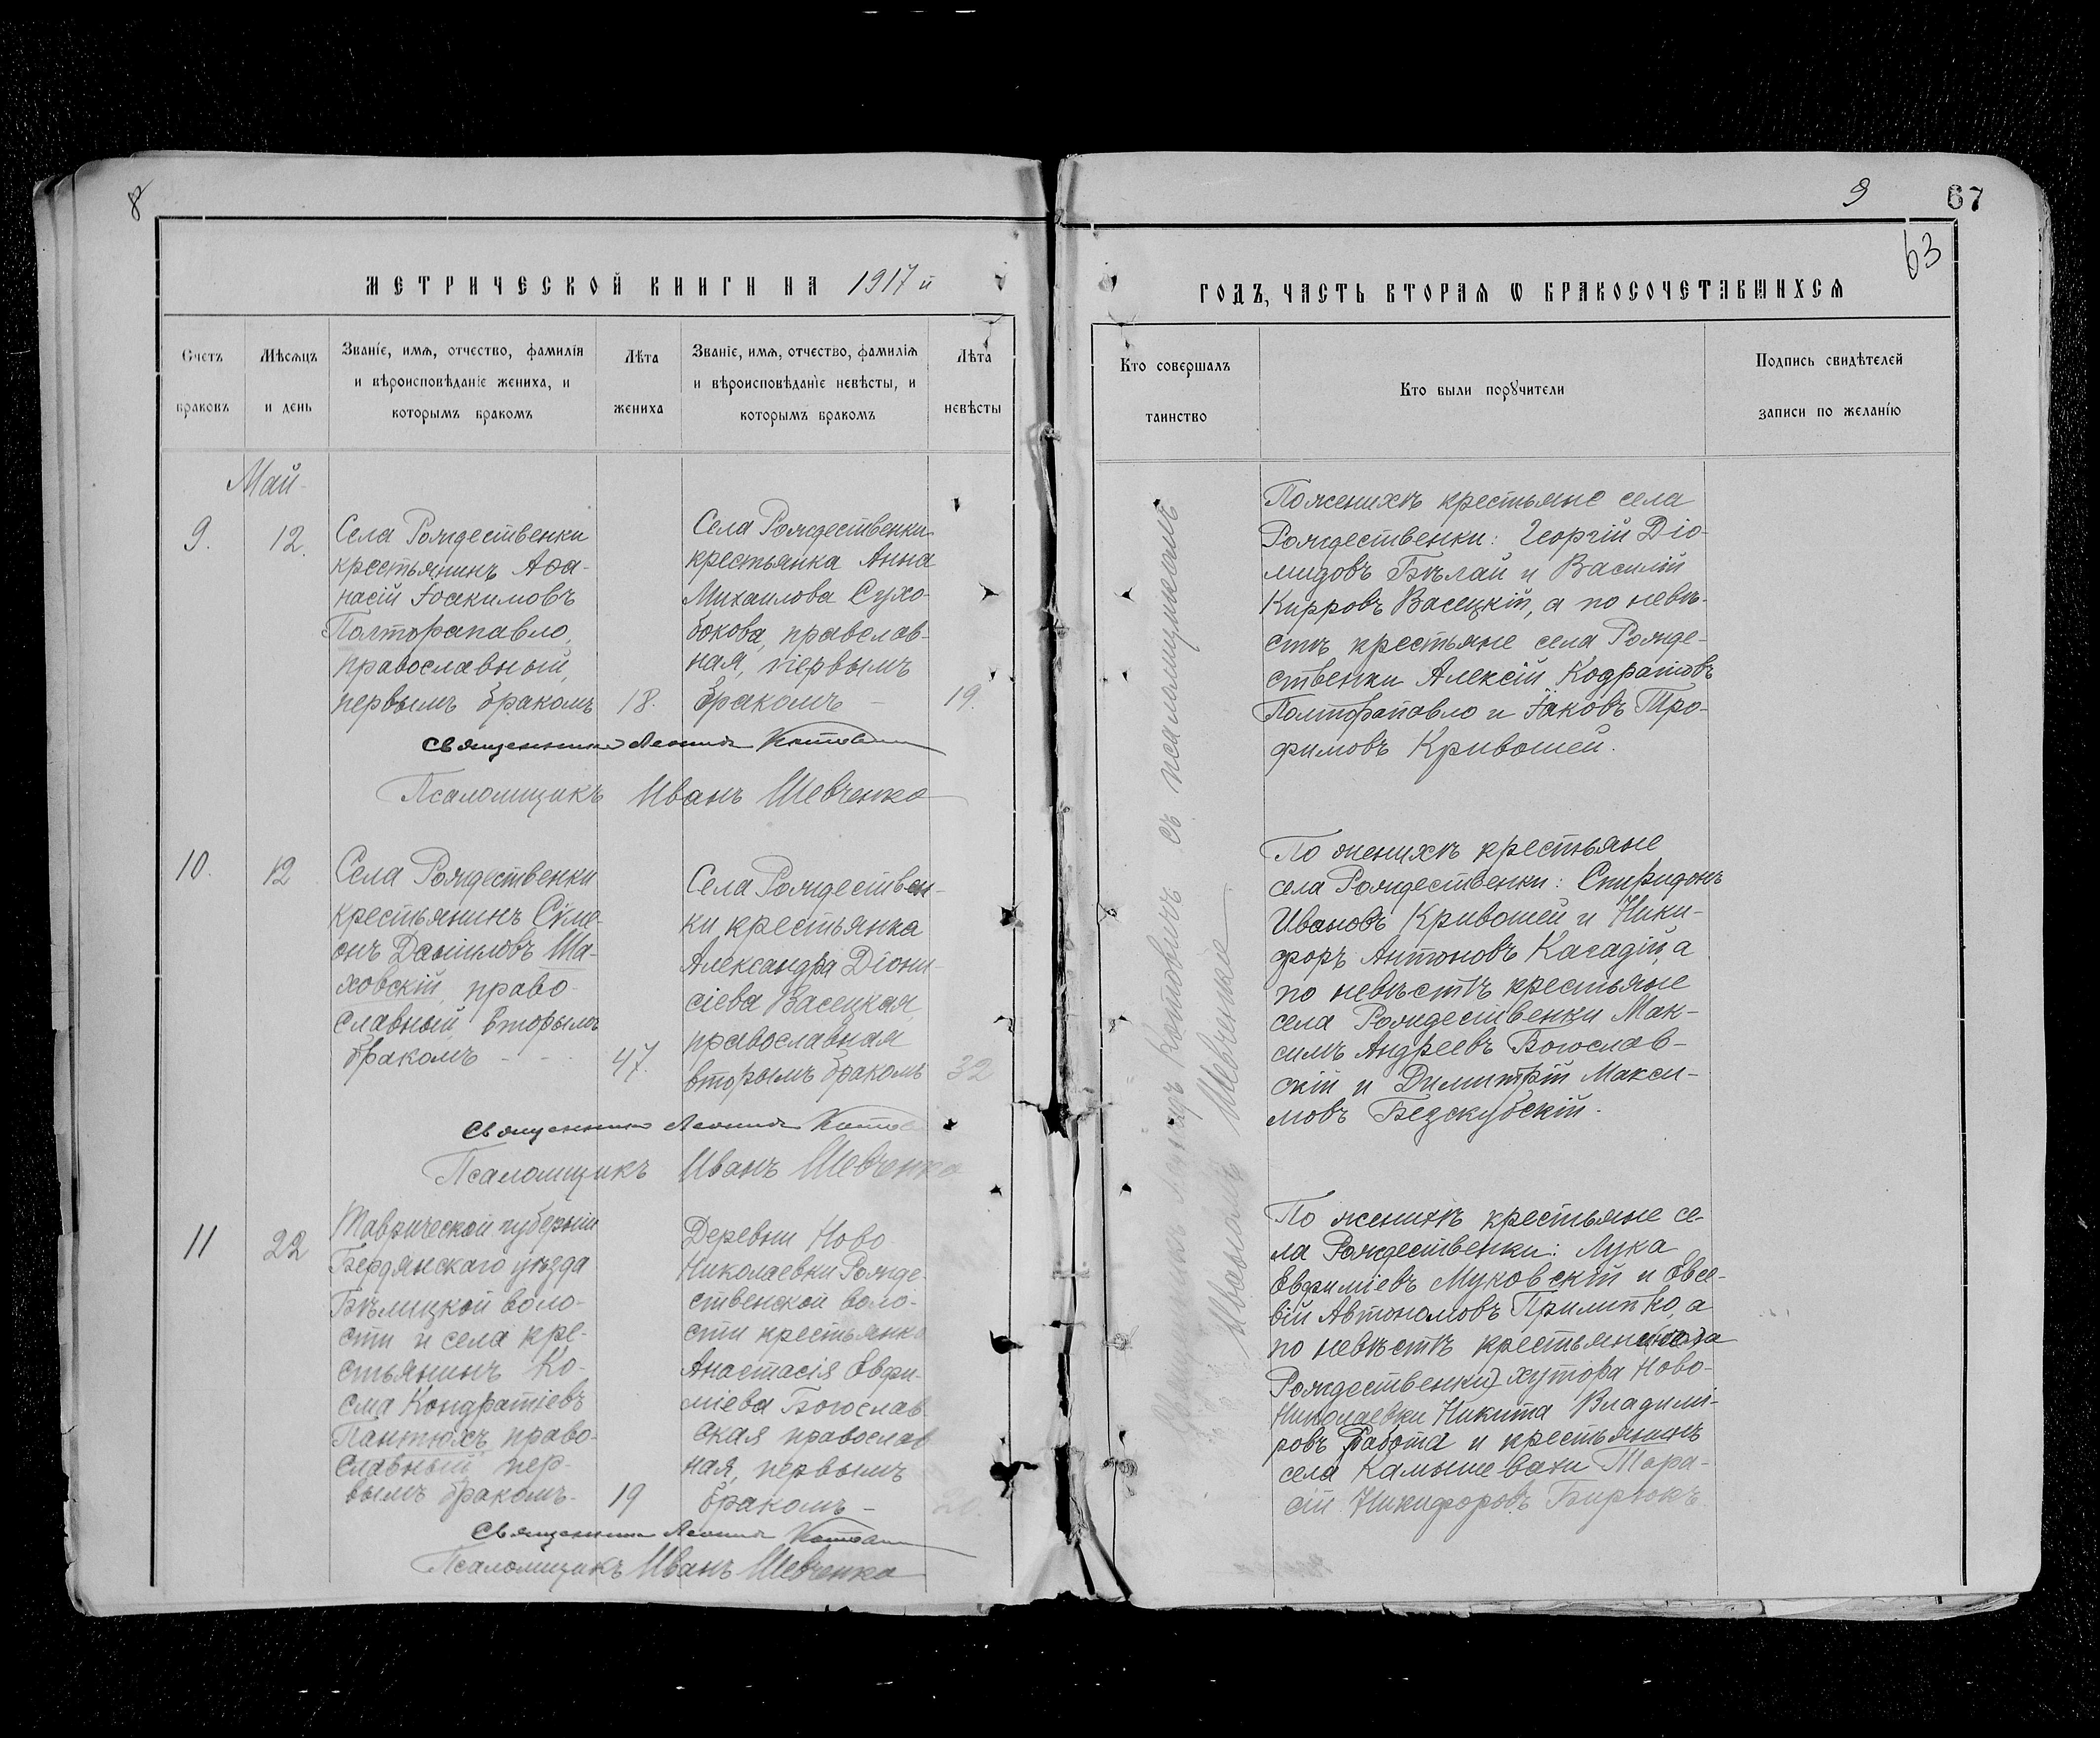 8
МЕТРИЧЕСКОЙ КНИГИ НА 1917 й
Счетъ браковъ
Мѣсяцъ и день
Званіе, имя, отчество, фамилія и вѣроисповѣданіе жениха, и которымъ бракомъ
Лѣта жениха
Званіе, имя, отчество, фамилія и вѣроисповѣданіе невѣсты, и которымъ бракомъ
Лѣта невѣсты
Май
9.
12.
Села Рождественки
крестьянинъ Аѳа-
насій Іоакимовъ
Полторапавло,
православный,
первымъ бракомъ
18.
Села Рождественки
крестьянка Анна
Михаилова Сухо-
бокова, православ-
ная, первымъ
бракомъ –
19.
Священникъ Леонидъ
Псаломщикъ Иванъ Шевченко
10.
12
Села Рождественки
крестьянинъ Сѵме-
онъ Даниловъ Ша-
ховскій, право-
славный, вторымъ
бракомъ - - -
47.
Села Рождествен-
ки, крестьянка
Александра Діони-
сіева Васецкая,
православная
вторымъ бракомъ
32
Священникъ Леонидъ
Псаломщикъ Иванъ Шевченко
11
22
Таврической губерніи
Бердянскаго уѣзда
Бѣлицкой воло-
сти и села кре-
стьянинъ Ко-
сма Кондратіевъ
Пантюхъ, право-
славный, пер-
вымъ бракомъ-
19
Деревни Ново
Николаевки Рожде-
ственской воло-
сти крестьянка
Анастасія Евфи-
міева Богослав
ская православ
ная, первымъ
бракомъ –
Священникъ Леонидъ
Псаломщикъ Иванъ Шевченко
9
67
63
ГОДЪ, ЧАСТЬ ВТОРАЯ Ѡ БРАКОСОЧЕТАВШИХСЯ
Кто совершалъ таинство
Кто были порꙋчители
Подпись свидѣтелей записи по желанію
Священникъ Леонидъ Котовичъ съ псаломщикомъ
Иваномъ Шевченко
По женихѣ крестьяне села
Рождественки: Георгій Діо-
мидовъ Бѣлай и Василій
Кирровъ Васецкій, а по невѣ-
стѣ крестьяне села Рожде-
ственки Алексій Кодратовъ
Полторапавло и Іаковъ Тро-
фимовъ Кривошей.
По женихѣ крестьяне
села Рождественки: Спиридонъ
Ивановъ Кривошей и Ники-
форъ Антоновъ Качадій, а
по невѣстѣ крестьяне
села Рождественки Мак-
симъ Андреевъ Богослав-
скій и Димитрій Макси-
мовъ Безскубскій.
По женихѣ крестьяне се-
ла Рождественки: Лука
Евфиміевъ Муковскій и Евсе-
вій Автономовъ Прилипко, а
по невѣстѣ крестьяне
Рождественки) хутора Ново-
Николаевки Никита Владими-
ровъ Работа и крестьянинъ
села Камышевахи Тара-
сій Никифоровъ Бирюкъ